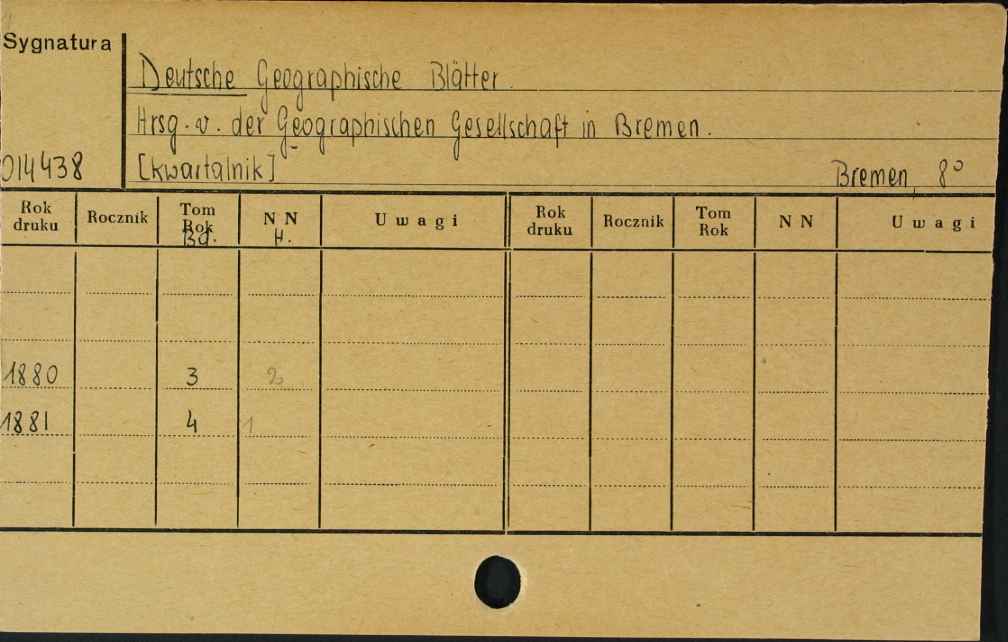 Sygnatura
Deutsche Geographische Blätter.
Hrsg. v. der Geographischen Gesellschaft in Bremen.
014438 [kwartalnik] Bremen, 8°
Rok druku Rocznik Tom Rok Bd. NN H. Uwagi Rok druku Rocznik Tom Rok NN Uwagi
1880 3 2
1881 4 1